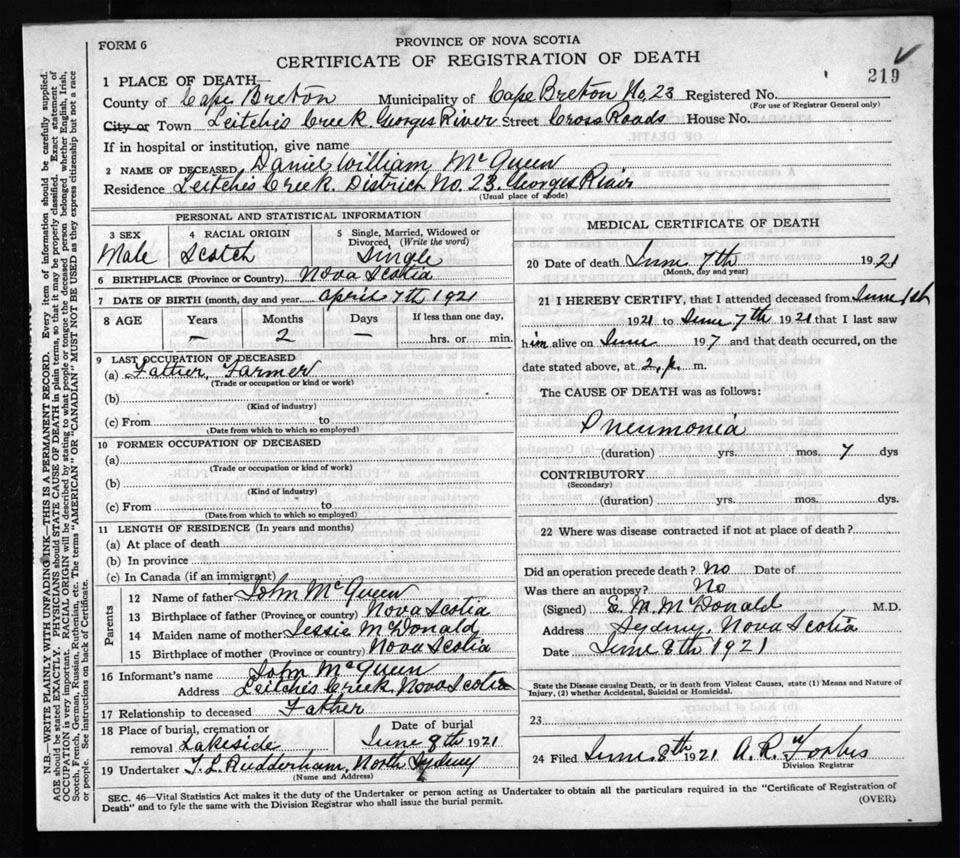 FORM 6
PROVINCE OF NOVA SCOTIA
CERTIFICATE OF REGISTRATION OF DEATH
219
1 PLACE OF DEATH—
County of Cape Breton Municipality of Cape Breton No, 23 Registered No.
(For use of Registrar General only)
City or Town Leitches Creek. Georges River Street Cross Roads House No.
If in hospital or institution, give name
2 NAME OF DECEASED Daniel William McQueen
Residence Leitches Creek. District No. 23. Georges River
(Usual place of abode)
PERSONAL AND STATISTICAL INFORMATION
3 SEX 4 RACIAL ORIGIN 5 Single, Married, Widowed or Divorced. (Write the word)
Male Scotch Single
6 BIRTHPLACE (Province or Country) Nova Scotia
7 DATE OF BIRTH (month, day and year) April 7th 1921
8 AGE Years Months Days If less than one day,
— 2 — hrs. or min.
9 LAST OCCUPATION OF DECEASED
(a) Father, Farmer
(Trade or occupation or kind or work)
(b)
(Kind of industry)
(c) From to
(Date from which to which so employed)
10 FORMER OCCUPATION OF DECEASED
(a)
(Trade or occupation or kind of work)
(b)
(Kind of industry)
(c) From to
(Date from which to which so employed)
11 LENGTH OF RESIDENCE (In years and months)
(a) At place of death
(b) In province
(c) In Canada (if an immigrant)
Parents
12 Name of father John McQueen
13 Birthplace of father (Province or Country) Nova Scotia
14 Maiden name of mother Jessie McDonald
15 Birthplace of mother (Province or country) Nova Scotia
16 Informant's name John McQueen
Address Leitches Creek, Nova Scotia
17 Relationship to deceased Father
18 Place of burial, cremation or removal Lakeside
Date of burial
June 9th 1921
19 Undertaker T. L. Rudderham, North Sydney
(Name and Address)
MEDICAL CERTIFICATE OF DEATH
20 Date of death June 7th 1921
(Month, day and year)
21 I HEREBY CERTIFY, that I attended deceased from June 1st
1921 to June 7th 1921 that I last saw
him alive on June 197 and that death occurred, on the
date stated above, at 2 p. m.
The CAUSE OF DEATH was as follows:
Pneumonia
(duration) yrs. mos. 7 dys
CONTRIBUTORY
(Secondary)
(duration) yrs. mos. dys.
22 Where was disease contracted if not at place of death?
Did an operation precede death? No Date of
Was there an autopsy? No
(Signed) E. M. McDonald M.D.
Address Sydney, Nova Scotia
Date June 8th 1921
State the Disease causing Death, or in death from Violent Causes, state (1) Means and Nature of
Injury, (2) whether Accidental, Suicidal or Homicidal.
23
24 Filed June 8th 1921 A. R. Forbes
Division Registrar
SEC. 46—Vital Statistics Act makes it the duty of the Undertaker or person acting as Undertaker to obtain all the particulars required in the "Certificate of Registration of
Death" and to fyle the same with the Division Registrar who shall issue the burial permit.
(OVER)
N.B.—WRITE PLAINLY WITH UNFADING INK—THIS IS A PERMANENT RECORD. Every item of information should be carefully supplied.
AGE should be stated EXACTLY. PHYSICIANS should STATE CAUSE OF DEATH in plain terms, so that it may be properly classified. Exact statement of
OCCUPATION is very important. RACIAL ORIGIN will be described by stating to what people or tongue the deceased person belonged whether English, Irish,
Scotch, French, German, Russian, Ruthenian, etc. The terms "AMERICAN" OR "CANADIAN" MUST NOT BE USED as they express citizenship but not a race
or people. See instructions on back of Certificate.